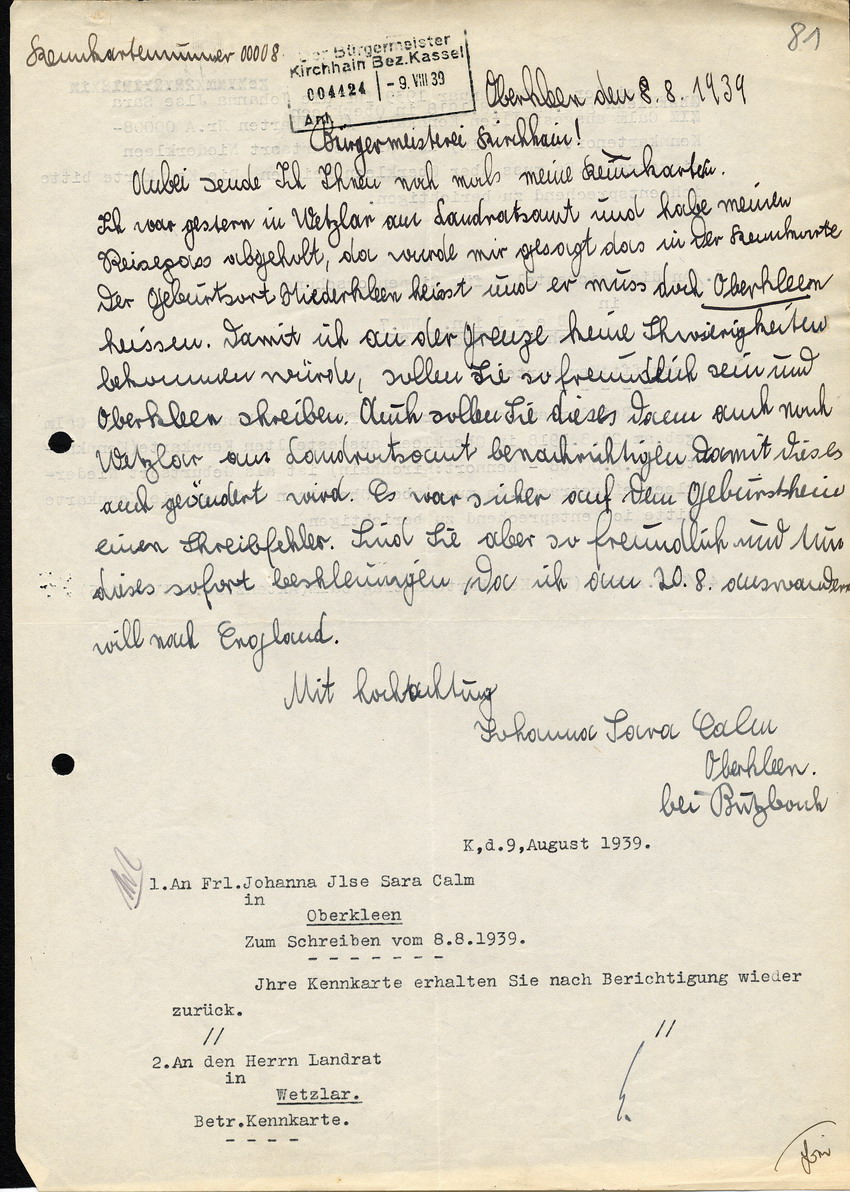 81
Kennkartennummer 00008.
Der Bürgermeister
Kirchhain Bez.Kassel
004424 - 9. VIII 39
Oberkleen den 8. 8. 1939
Bürgermeisterei Kirchhain!
Anbei sende Ich Ihnen noch mals meine Kennkarten.
Ich war gestern in Wetzlar am Landratsamt und habe meinen
Reisepass abgeholt, da wurde mir gesagt das in der Kennkarte
der Geburtsort Niederkleen heisst und er muss doch Oberkleen
heissen. Damit ich an der Grenze keine Schwierigkeiten
bekommen würde, sollen Sie so freundlich sein und
Oberkleen schreiben. Auch sollen Sie dieses dann auch nach
Wetzlar aus Landratsamt benachrichtigen damit dieses
auch geändert wird. Es war sicher auf dem Gebursthein
einen Schreibfehler. Sind Sie aber so freundlich und tun
dieses sofort beshleunigen, Da ich am 20. 8. auswandern
will nach England.
Mit hochachtung
Johanna Sara Calm
Oberkleen.
bei Butzbach
K,d.9,August 1939.
1.An Frl.Johanna Jlse Sara Calm
in
Oberkleen
Zum Schreiben vom 8.8.1939.
- - - - - - -
Jhre Kennkarte erhalten Sie nach Berichtigung wieder
zurück.
//
//
2.An den Herrn Landrat
in
Wetzlar.
Betr.Kennkarte.
- - - -